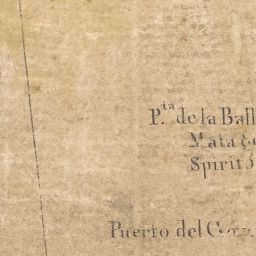 P.ta de la Ball
Matag
Spirit
Puerto del